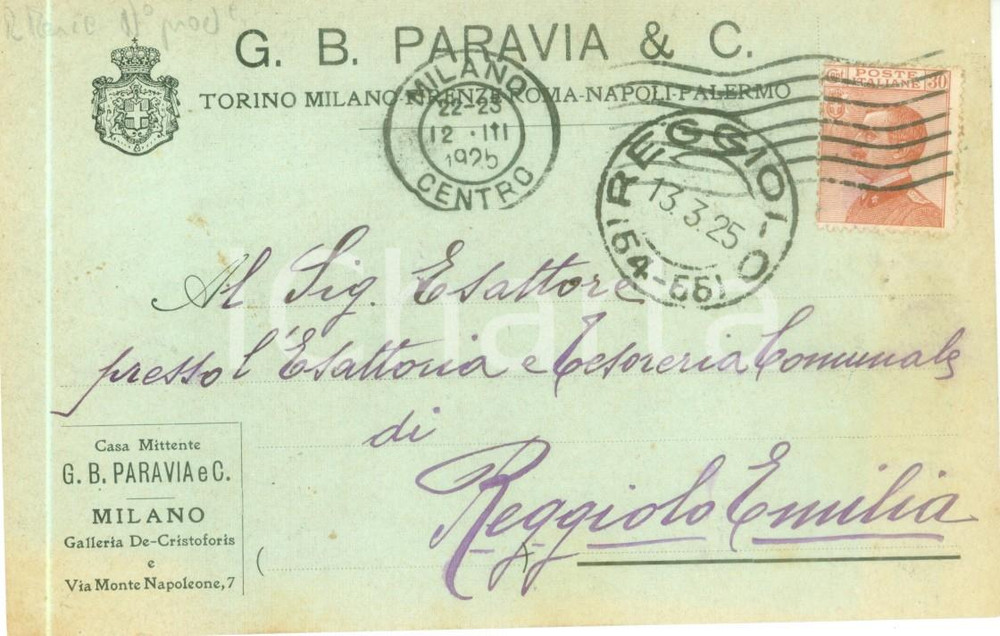 G. B. PARAVIA & C.
TORINO MILANO-FIRENZE-ROMA-NAPOLI-PALERMO
MILANO
22-23
12 · III
1925
CENTRO
REGGIOLO
13.3.25
(54-55)
POSTE
ITALIANE
30
Al Sig. Esattore
presso l'Esattoria e Tesoreria Comunale
di
Reggiolo Emilia
Casa Mittente
G. B. PARAVIA e C.
MILANO
Galleria De-Cristoforis
e
Via Monte Napoleone, 7
( )
iCharta